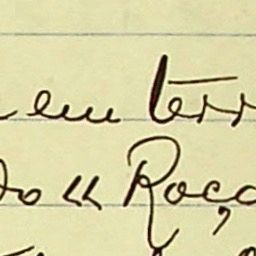 em terr
do « Roça